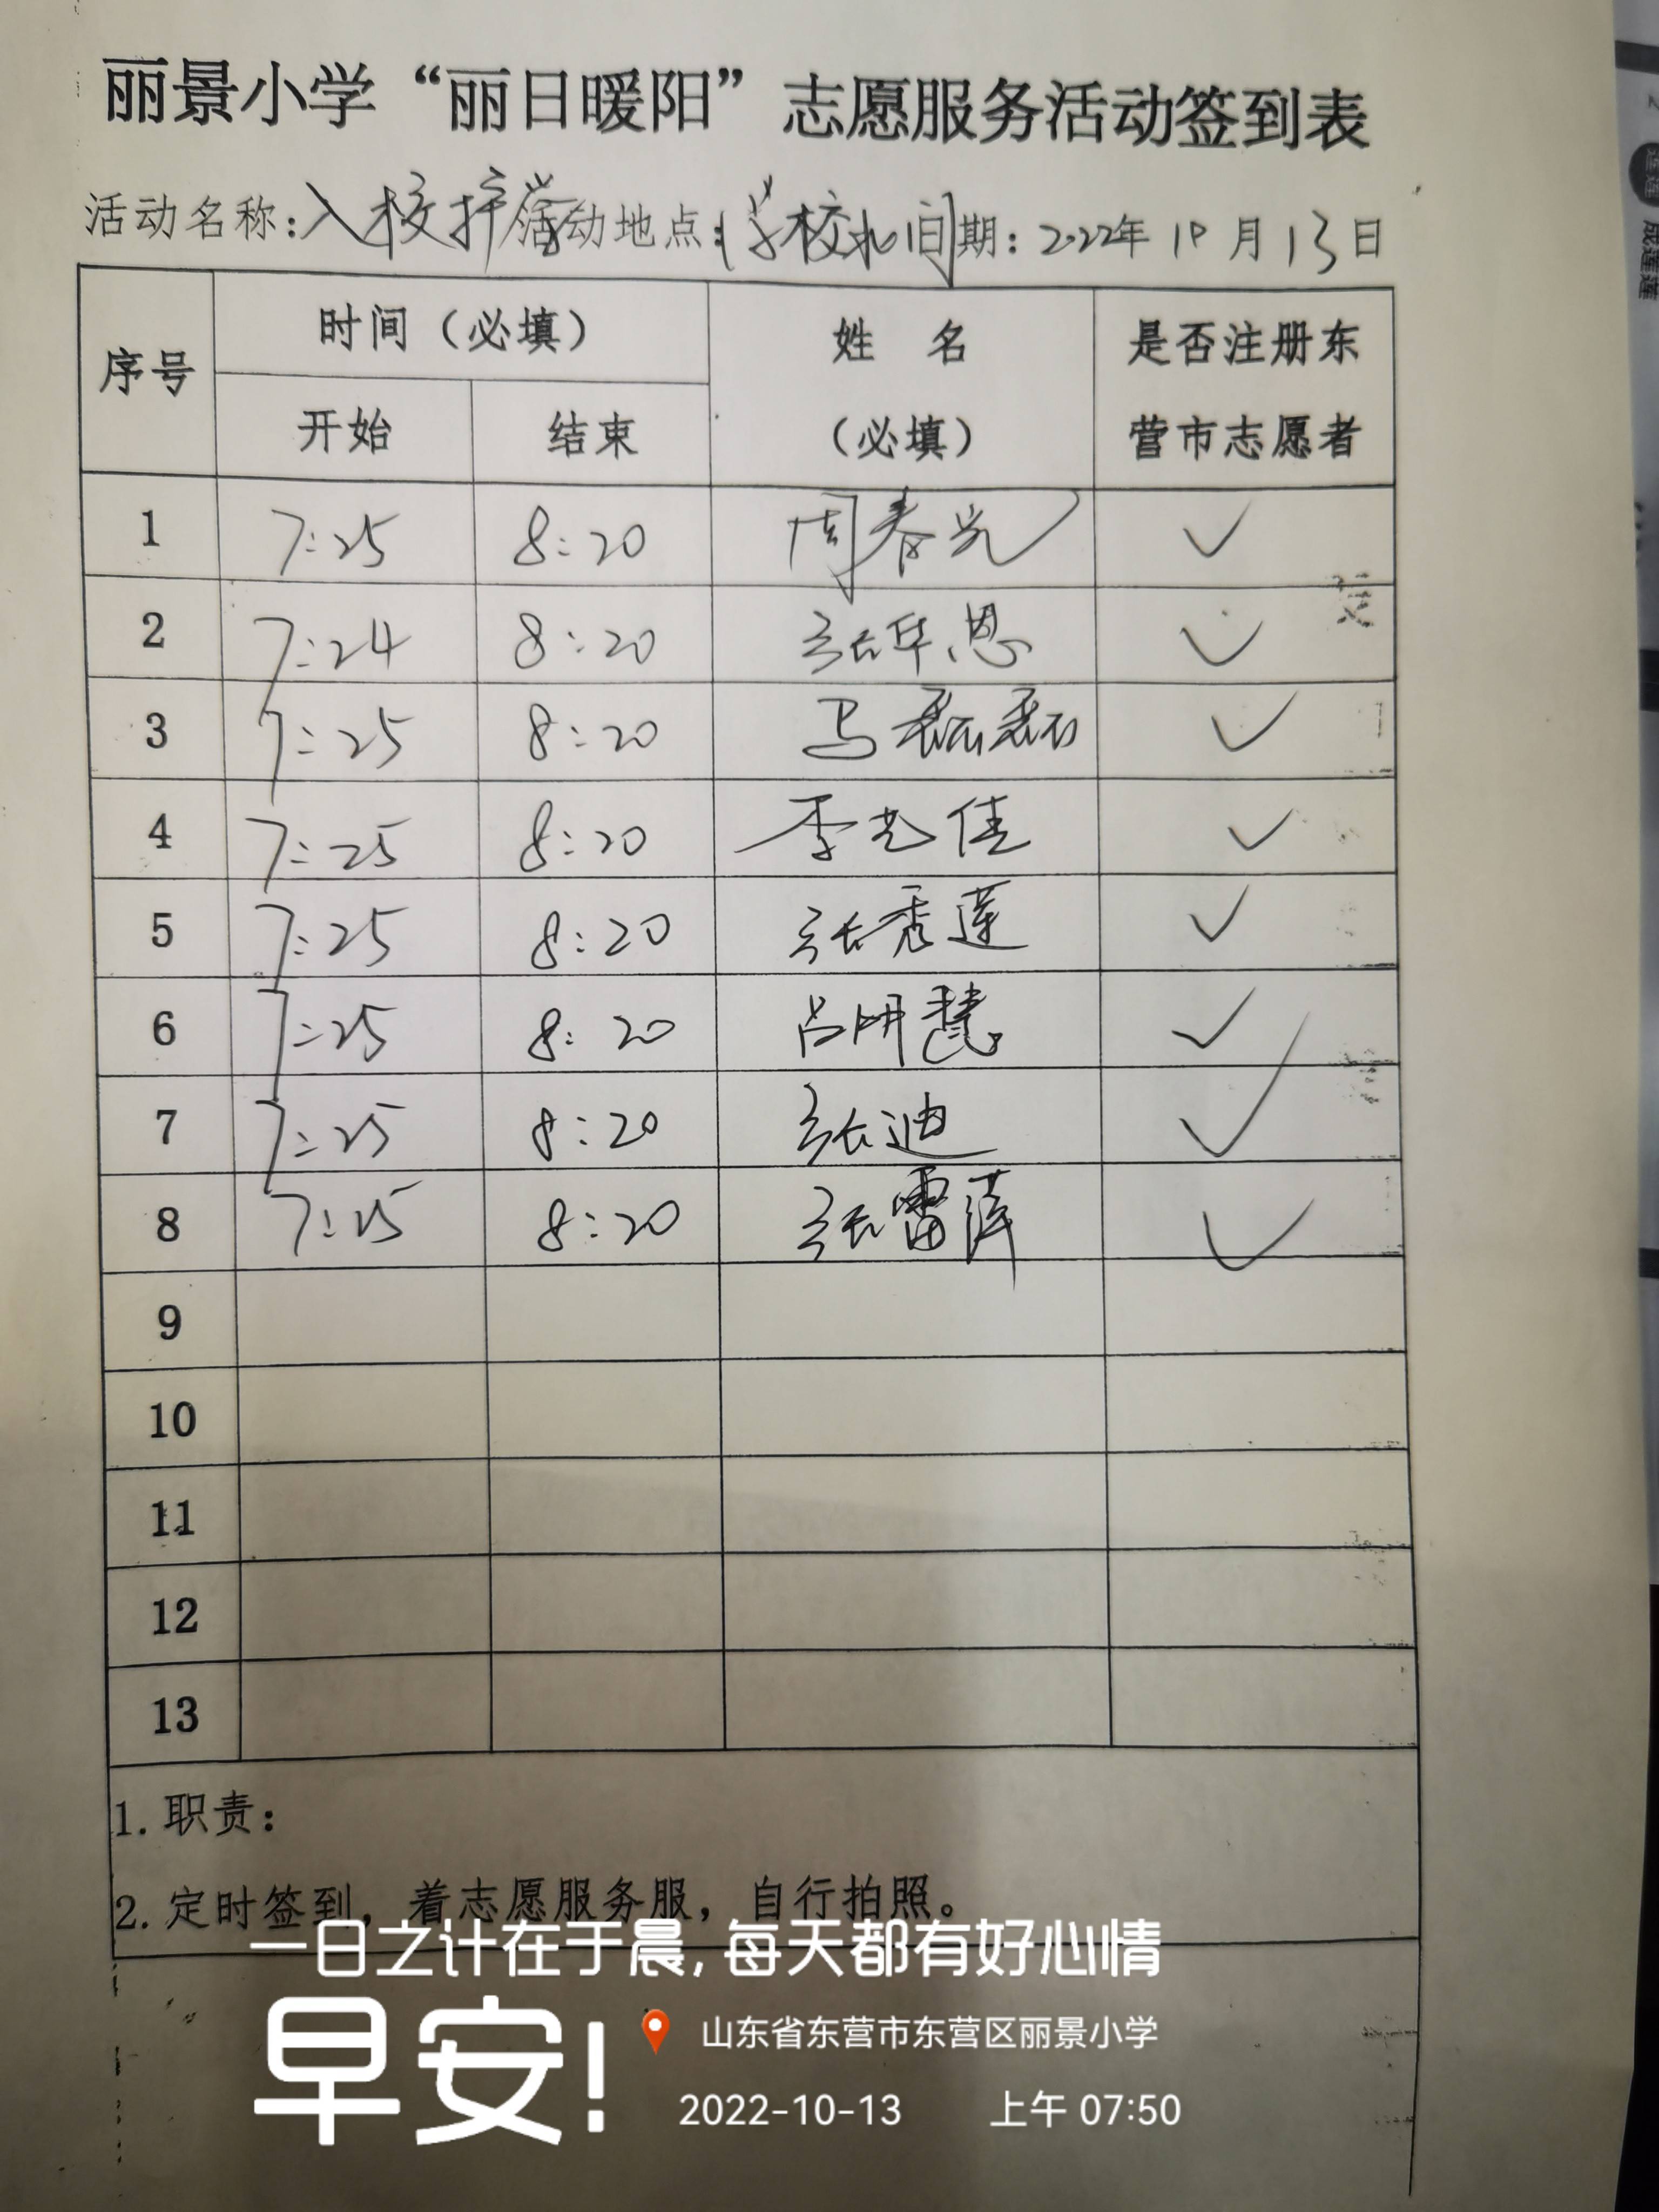 丽景小学“丽日暖阳”志愿服务活动签到表
活动名称:入校护学 活动地点:学校北门 日期: 2022年 10 月 13 日
序号 时间（必填） 姓 名 是否注册东
开始 结束 （必填） 营市志愿者
1 7:25 8:20 周春光 ✓
2 7:24 8:20 张华恩 ✓
3 7:25 8:20 马磊磊 ✓
4 7:25 8:20 李艺佳 ✓
5 7:25 8:20 张秀莲 ✓
6 7:25 8:20 吕明慧 ✓
7 7:25 8:20 张迪 ✓
8 7:25 8:20 张雷萍 ✓
9
10
11
12
13
1. 职责:
2. 定时签到，着志愿服务服，自行拍照。
一日之计在于晨,每天都有好心情
早安!
山东省东营市东营区丽景小学
2022-10-13 上午 07:50